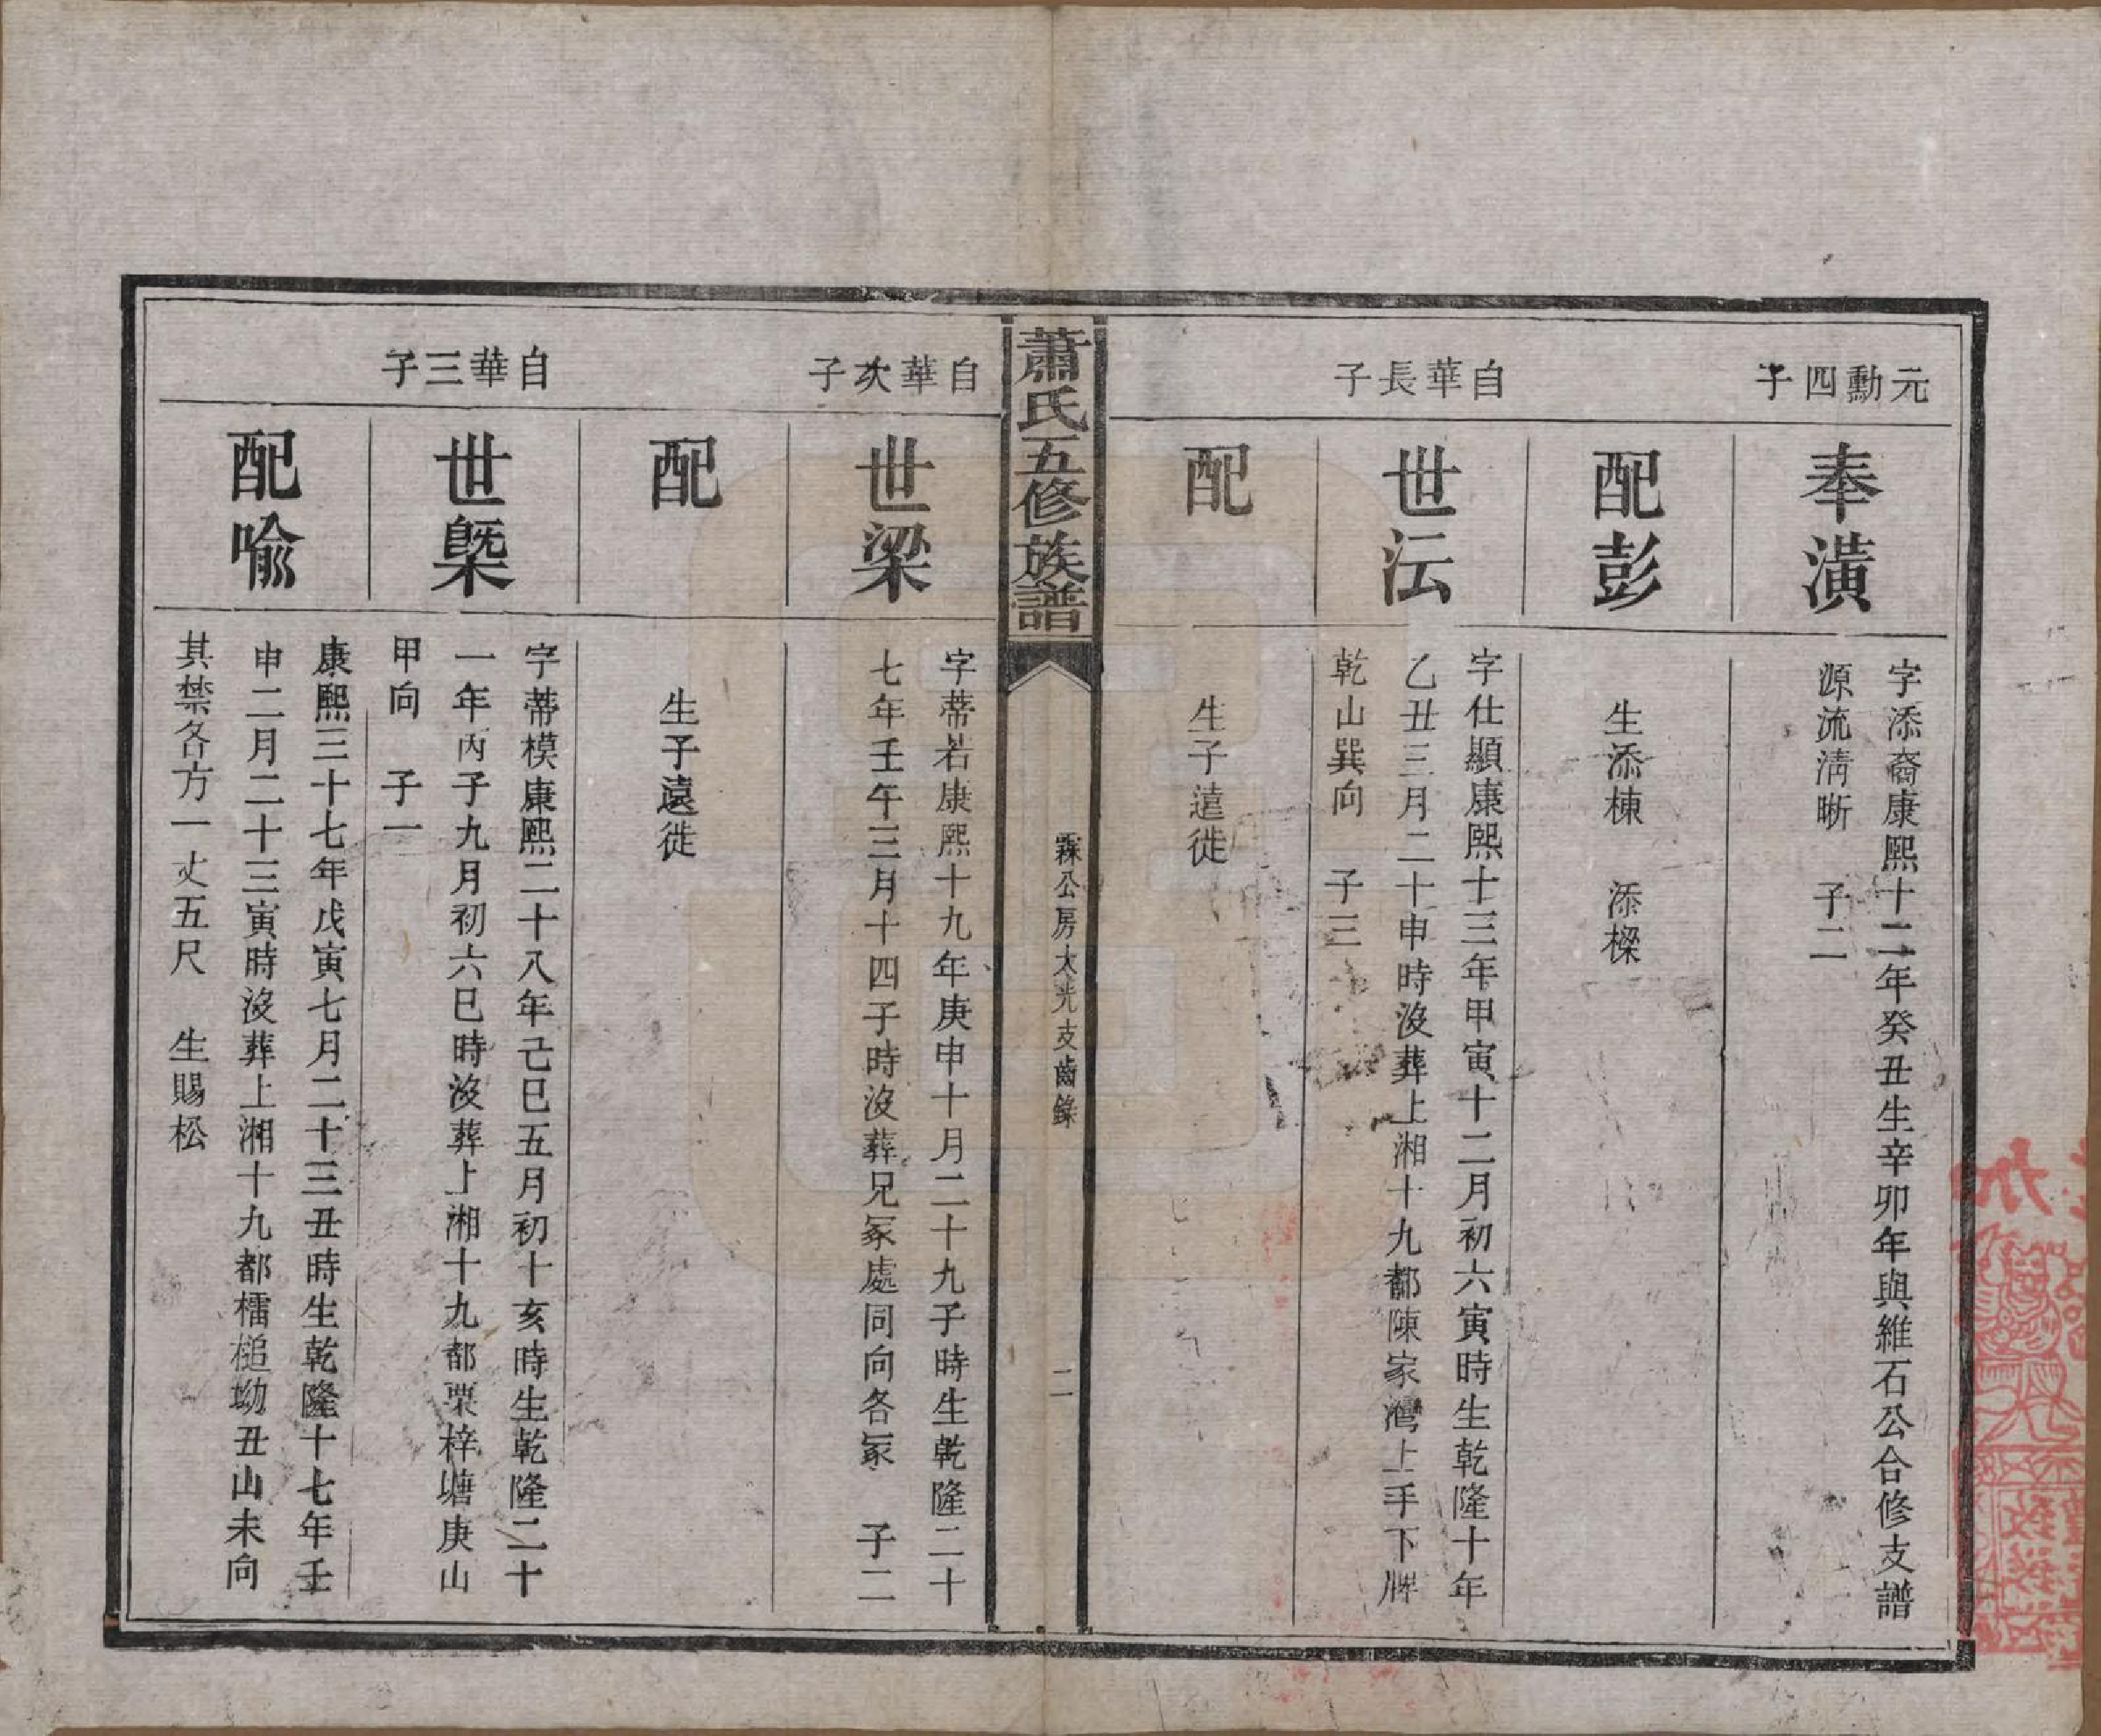 元勳四子
奉潢
字添裔康熙十二年癸丑生辛卯年與維石公合修支譜
源流清晰　子二
配彭
生添棟　添樑
自華長子
世沄
字仕顯康熙十三年甲寅十二月初六寅時生乾隆十年
乙丑三月二十申時沒葬上湘十九都陳家灣上手下牌
乾山巽向　子三
配
生子遠徙
蕭氏五修族譜
霖公房大光支齒錄
二
自華次子
世梁
字蒂若康熙十九年庚申十月二十九子時生乾隆二十
七年壬午三月十四子時沒葬兄冢處同向各冢　子二
配
生子遠徙
自華三子
世槩
字蒂模康熙二十八年己巳五月初十亥時生乾隆二十
一年丙子九月初六巳時沒葬上湘十九都栗梓塘庚山
甲向　子一
配喻
康熙三十七年戊寅七月二十三丑時生乾隆十七年壬
申二月二十三寅時沒葬上湘十九都檑槌坳丑山未向
其禁各方一丈五尺　生賜松